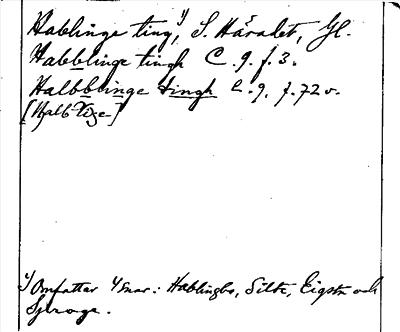 Hablinge ting, 1) S. Häradet, Gl.
Habblinge tingh C. 9. f. 3.
Halbblinge tingh C. 9. f. 72 v.
[Halb
1) Omfattar 4 snar: Hablingbo, Silte, Eigstu och
Sproge.